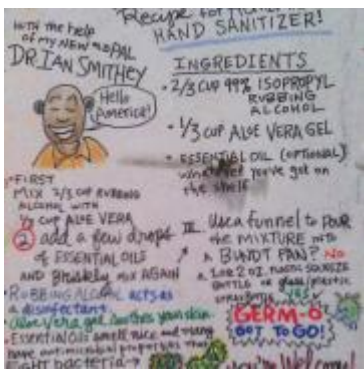 WITH the help
of my NEW OLD PAL
DR. IAN SMITHEY
Hello
America!
Recipe for
HAND SANITIZER!
INGREDIENTS
• 2/3 CUP 99% ISOPROPYL
RUBBING
ALCOHOL
• 1/3 CUP ALOE VERA GEL
• ESSENTIAL OIL (OPTIONAL)
whatever you've got on
the shelf
• FIRST
MIX 2/3 CUP RUBBING
ALCOHOL WITH
1/3 CUP ALOE VERA
2 add a few drops
of ESSENTIAL OILS
AND Briskly MIX AGAIN
III Use a funnel to POUR
the MIXTURE into
A BUNDT PAN? NO
a 1 OR 2 OZ. PLASTIC SQUEEZE
BOTTLE or glass/plastic
YES
• RUBBING ALCOHOL acts as
a disinfectant.
• Aloe Vera gel soothes your skin
• Essential Oils smell nice and many
have antimicrobial properties that
FIGHT bacteria →
GERM-O
GOT TO GO!
You're Welcome!